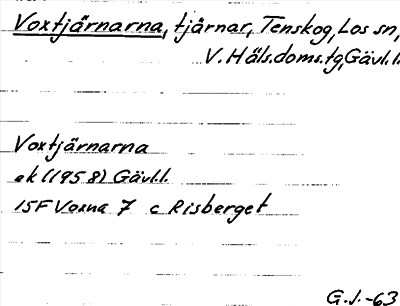 Voxtjärnarna, tjärnar, Tenskog, Los sn,
V. Häls.doms.tg, Gävl.l.
Voxtjärnarna
ek (1958) Gävl.l.
15F Voxna 7 c Risberget
G.J.-63